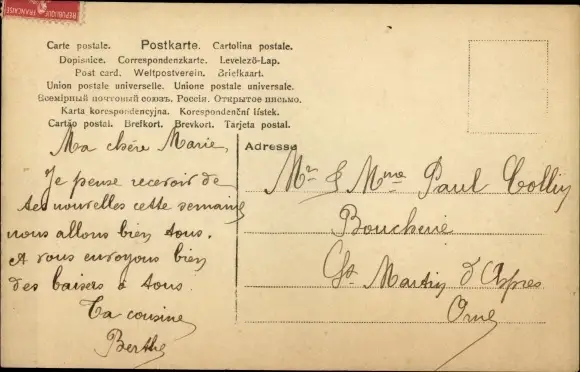 REPUBLIQUE FRANCAISE
Carte postale. Postkarte. Cartolina postale.
Dopisnice. Correspondenzkarte. Levelező-Lap.
Post card. Weltpostverein. Briefkaart.
Union postale universelle. Unione postale universale.
Всемірный почтовый союзъ. Россія. Открытое письмо.
Karta korespondencyjna. Korespondenční lístek.
Cartão postal. Brefkort. Brevkort. Tarjeta postal.
Ma chère Marie,
Je pense recevoir de
tes nouvelles cette semaine
nous allons bien tous.
et vous envoyons bien
des baisers à tous.
Ta cousine
Berthe
Adresse
Mr & Mme Paul Collin
Boucherie
St. Martin d'Aspres
Orne